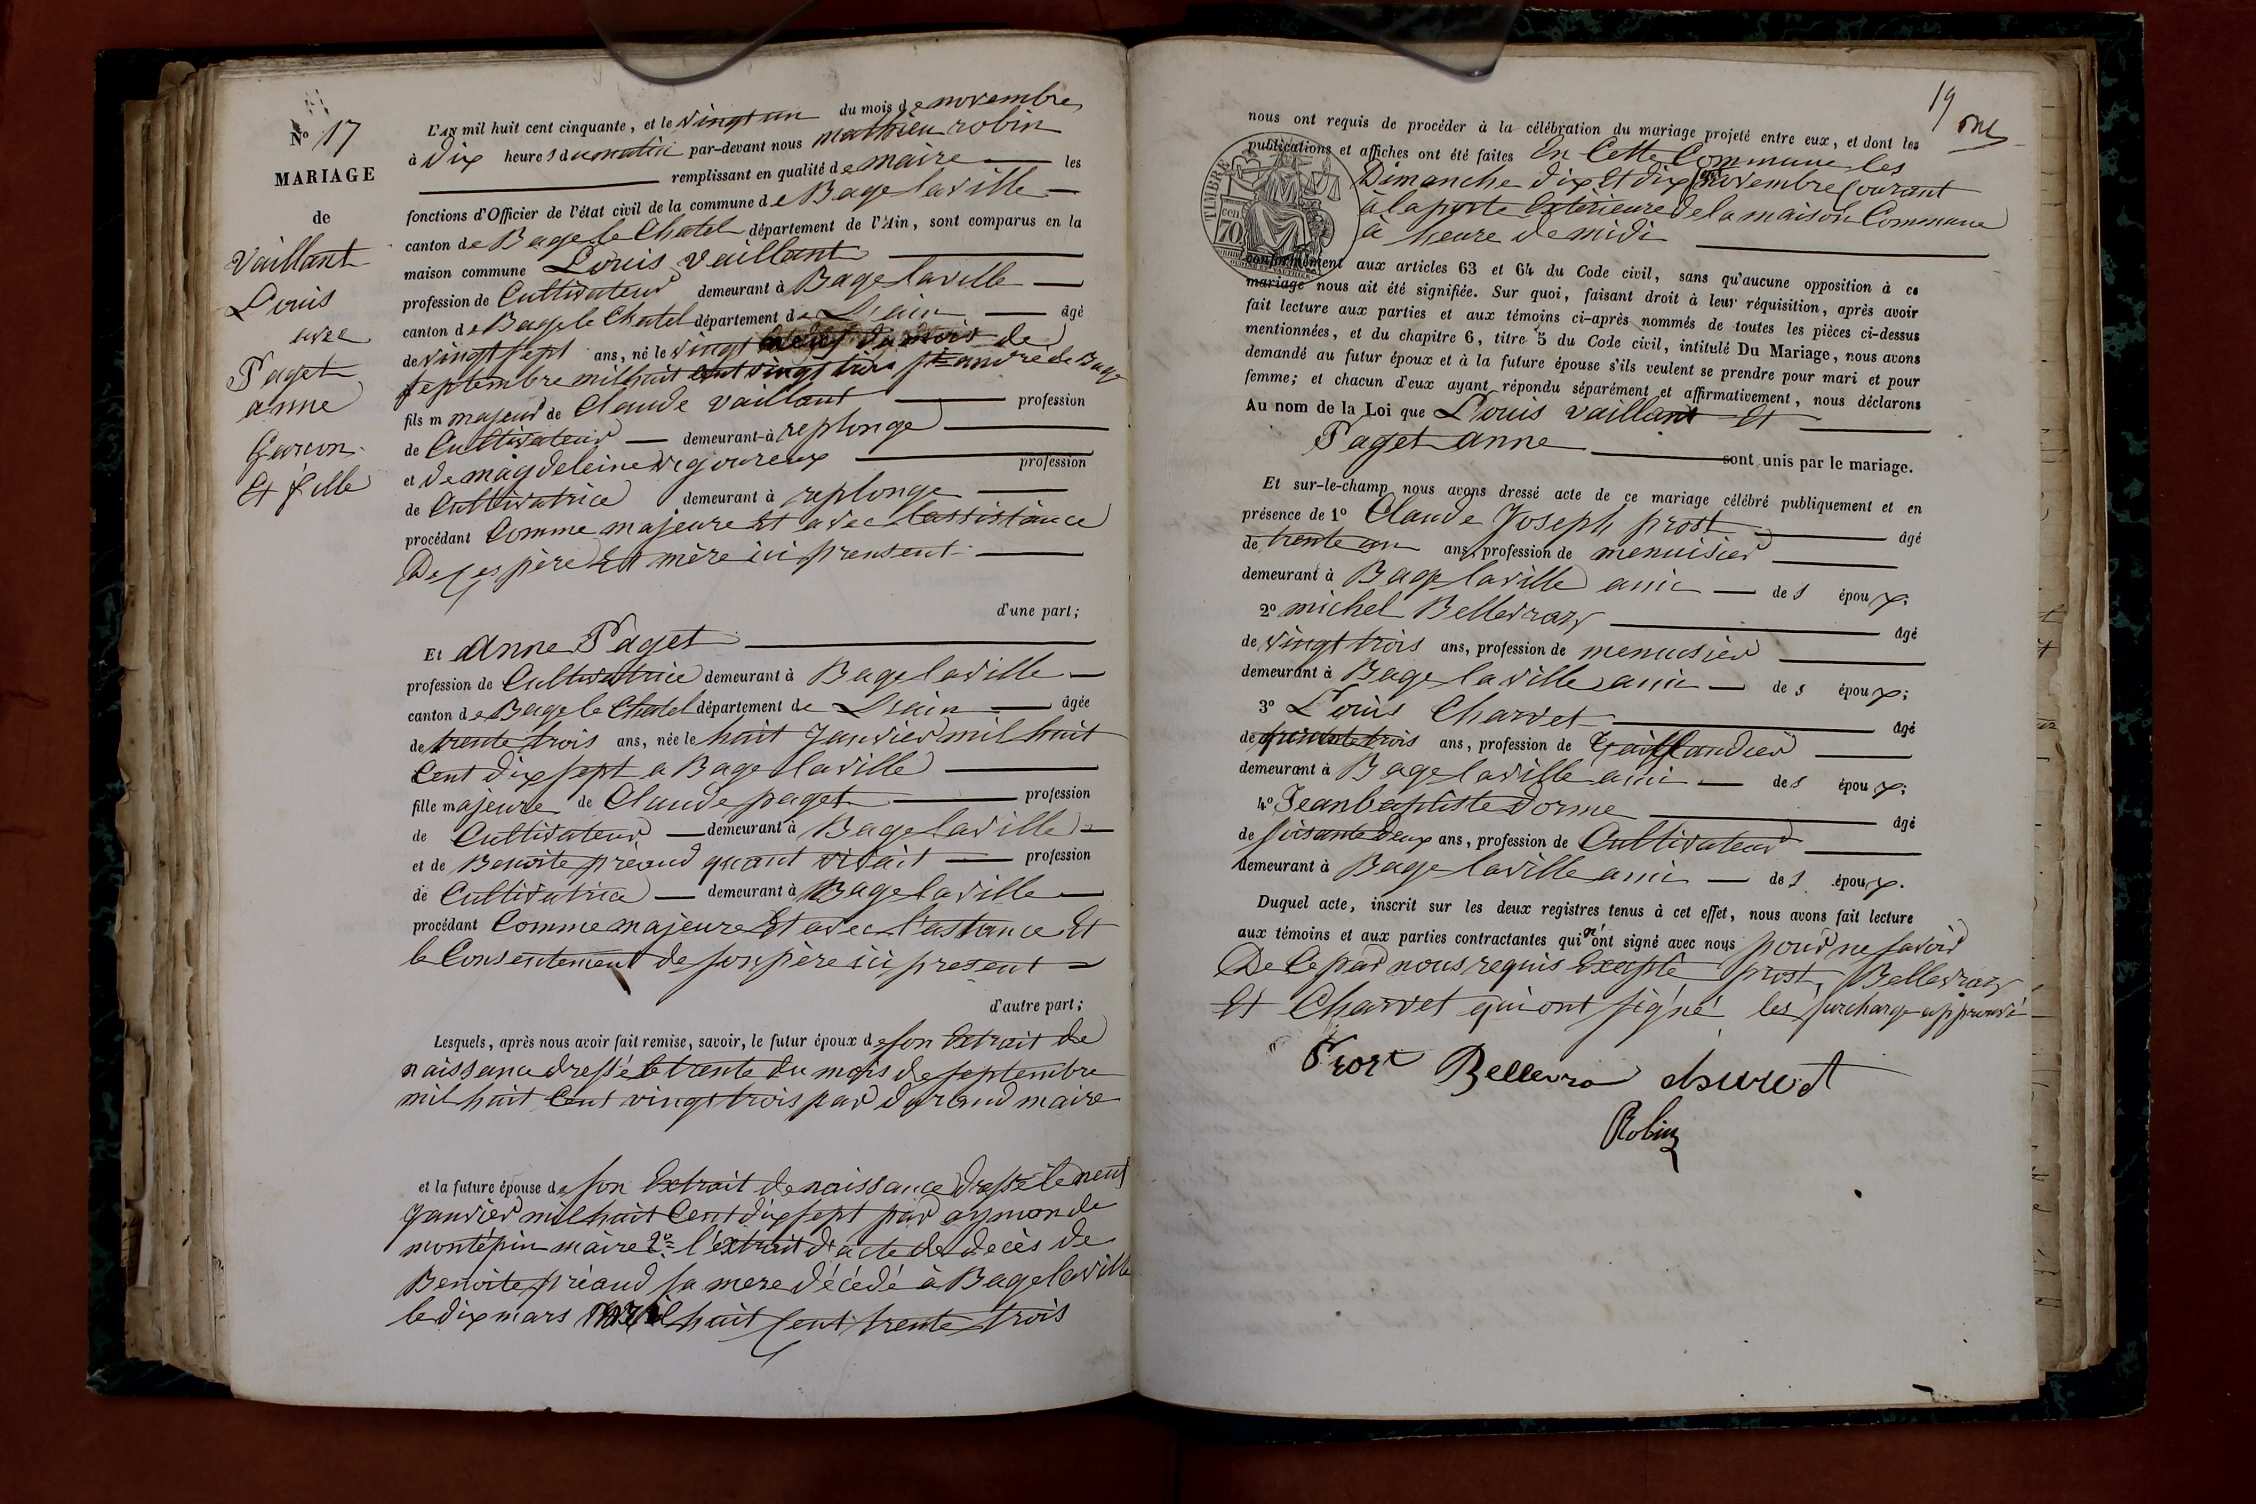 N.º 17
MARIAGE
de
Vaillant
Louis
avec
Paget
anne
Garcon
Et fille
L'AN mil huit cent cinquante, et le vingt un du mois de novembre
à dix heures du matin par-devant nous mathieu robin
remplissant en qualité de maire les
fonctions d'Officier de l'état civil de la commune de Bage laville
canton de Bage le Chatel département de l'Ain, sont comparus en la
maison commune Louis vaillant
profession de Cultivateur demeurant à Bage laville
canton de Bage le Chatel département de Liain âgé
de vingt sept ans, né le vingt neuf du mois de
septembre mil huit cent vingt trois st andré de Bage
fils m majeur de Claude vaillant profession
de Cultivateur demeurant à replonge
et de magdeleine vigoureux profession
de Cultivatrice demeurant à replonge
procédant Comme majeure Et avec lassistance
De ses père Et mère ici prensent
d'une part;
Et anne Paget
profession de Cultivatrice demeurant à Bage laville
canton de Bage le Chatel département de Liain âgée
de trente trois ans, née le huit Janvier mil huit
Cent dix sept a Bage laville
fille majeure de Claude paget profession
de Cultivateur demeurant à Bage laville
et de Benoite préaud quant vivait profession
de Cultivatrice demeurant à Bage laville
procédant Comme majeure Et avec l'astance Et
le Consentement de son père ici present
d'autre part;
Lesquels, après nous avoir fait remise, savoir, le futur époux de son Extrait de
naissance dressé le trente du mois de septembre
mil huit Cent vingt trois par durand maire
et la future épouse de son Extrait de naissance dressé le neuf
Janvier mil huit Cent dix sept par aymon de
montépin maire 2º l'extrait d'acte de decès de
Benoite préaud sa mere décédé à Bage laville
le dix mars mil huit Cent trente trois
19
nous ont requis de procéder à la célébration du mariage projeté entre eux, et dont les
publications et affiches ont été faites En Cette Commune les
Dimanche dix Et dix sept novembre Courant
à la porte Exterieure de la maison Commune
a heure de midi
TIMBRE
70 cen
conformément aux articles 63 et 64 du Code civil, sans qu'aucune opposition à ce
mariage nous ait été signifiée. Sur quoi, faisant droit à leur réquisition, après avoir
fait lecture aux parties et aux témoins ci-après nommés de toutes les pièces ci-dessus
mentionnées, et du chapitre 6, titre 5 du Code civil, intitulé Du Mariage, nous avons
demandé au futur époux et à la future épouse s'ils veulent se prendre pour mari et pour
femme; et chacun d'eux ayant répondu séparément et affirmativement, nous déclarons
Au nom de la Loi que Louis vaillant Et
Paget anne sont unis par le mariage.
Et sur-le-champ nous avons dressé acte de ce mariage célébré publiquement et en
présence de 1º Claude Joseph prost âgé
de trente un ans, profession de menuisier
demeurant à Bage laville ami des époux;
2º michel Bellevray âgé
de vingt trois ans, profession de menusier
demeurant à Bage laville ami des époux;
3º Louis Charvet âgé
de trois ans, profession de Taillandier
demeurant à Bage laville ami des époux;
4º Jean baptiste dorme âgé
de soisante deux ans, profession de Cultivateur
demeurant à Bage laville ami des époux.
Duquel acte, inscrit sur les deux registres tenus à cet effet, nous avons fait lecture
aux témoins et aux parties contractantes qui n'ont signé avec nous pour ne savoir
De Ce par nous requis Exepté prost, Bellevray
Et Charvet qui ont signé les surcharge approuvé
Prost Bellevra charvet
Robin